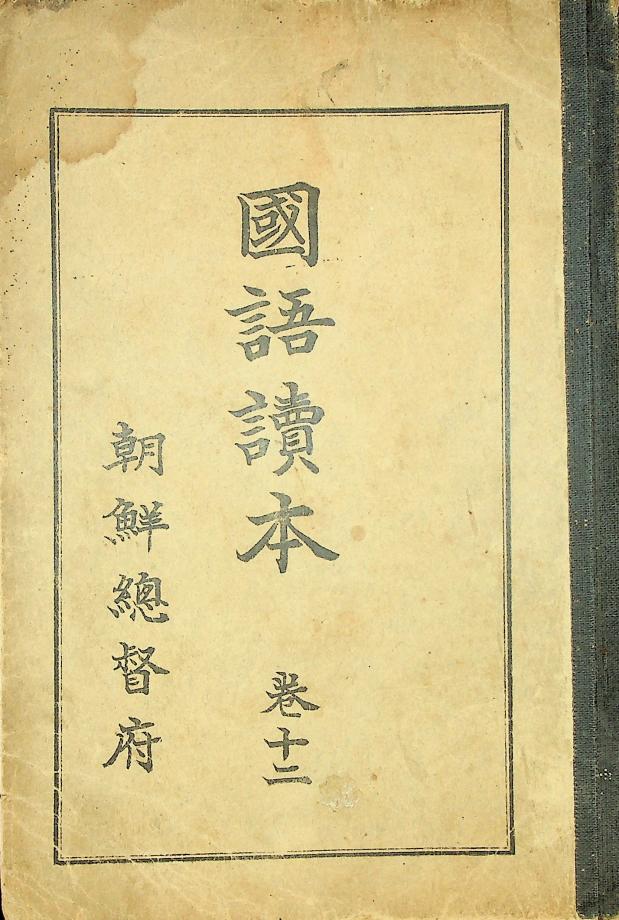 國語讀本 卷十二
朝鮮總督府